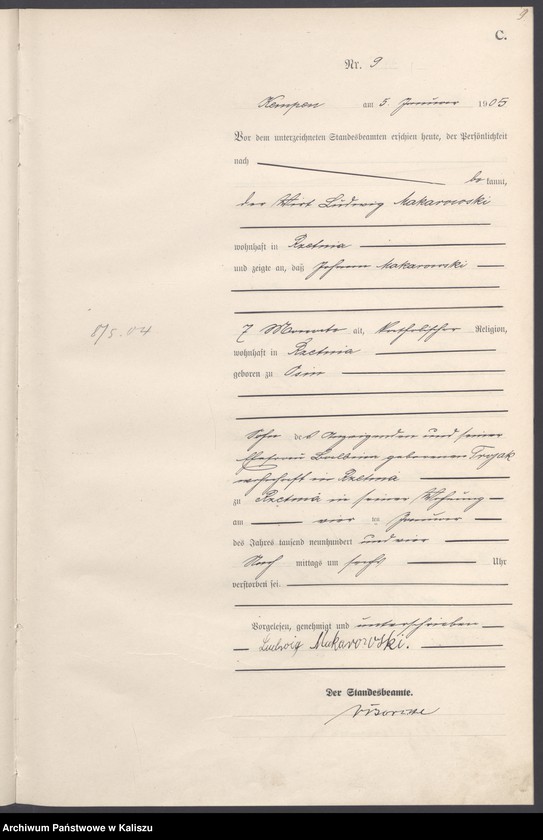 9
C.
Nr. 9
Kempen am 5. Januar 1905
Vor dem unterzeichneten Standesbeamten erschien heute, der Persönlichkeit
nach
be kannt,
der Wirt Ludwig Makarowski
wohnhaft in Rzetnia
und zeigte an, daß Johann Makarowski
8/5. 04
7 Monate alt, katholischer Religion,
wohnhaft in Rzetnia
geboren zu Osin
Sohn des Anzeigenden und seiner
Ehefrau Balbina geborenen Trojak
wohnhaft in Rzetnia
zu Rzetnia in seiner Wohnung
am vier ten Januar
des Jahres tausend neunhundert und vier
Nach mittags um sechs Uhr
verstorben sei.
Vorgelesen, genehmigt und unterschrieben
Ludwig Makarowski.
Der Standesbeamte.
Archiwum Państwowe w Kaliszu